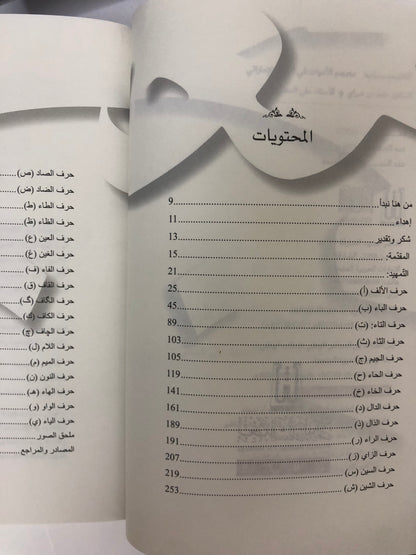 المحتويات
من هنا نبدأ.......9
إهداء.......11
شكر وتقدير.......13
المقدّمة:.......15
التّمهيد:.......21
حرف الألف (أ).......25
حرف الباء (ب).......45
حرف التاء: (ت).......89
حرف الثّاء (ث).......103
حرف الجيم (ج).......105
حرف الحاء (ح).......119
حرف الخاء (خ).......141
حرف الدال (د).......161
حرف الذال (ذ).......189
حرف الراء (ر).......191
حرف الزاي (ز).......207
حرف السين (س).......219
حرف الشين (ش).......253
حرف الصاد (ص)
حرف الضاد (ض)
حرف الطاء (ط)
حرف الظاء (ظ)
حرف العين (ع)
حرف الغين (غ)
حرف الفاء (ف)
حرف القاف (ق)
حرف الگاف (گ)
حرف الكاف (ك)
حرف الچاف (چ)
حرف اللام (ل)
حرف الميم (م)
حرف النون (ن)
حرف الهاء (هـ)
حرف الواو (و)
حرف الياء (ي)
ملحق الصور
المصادر والمراجع